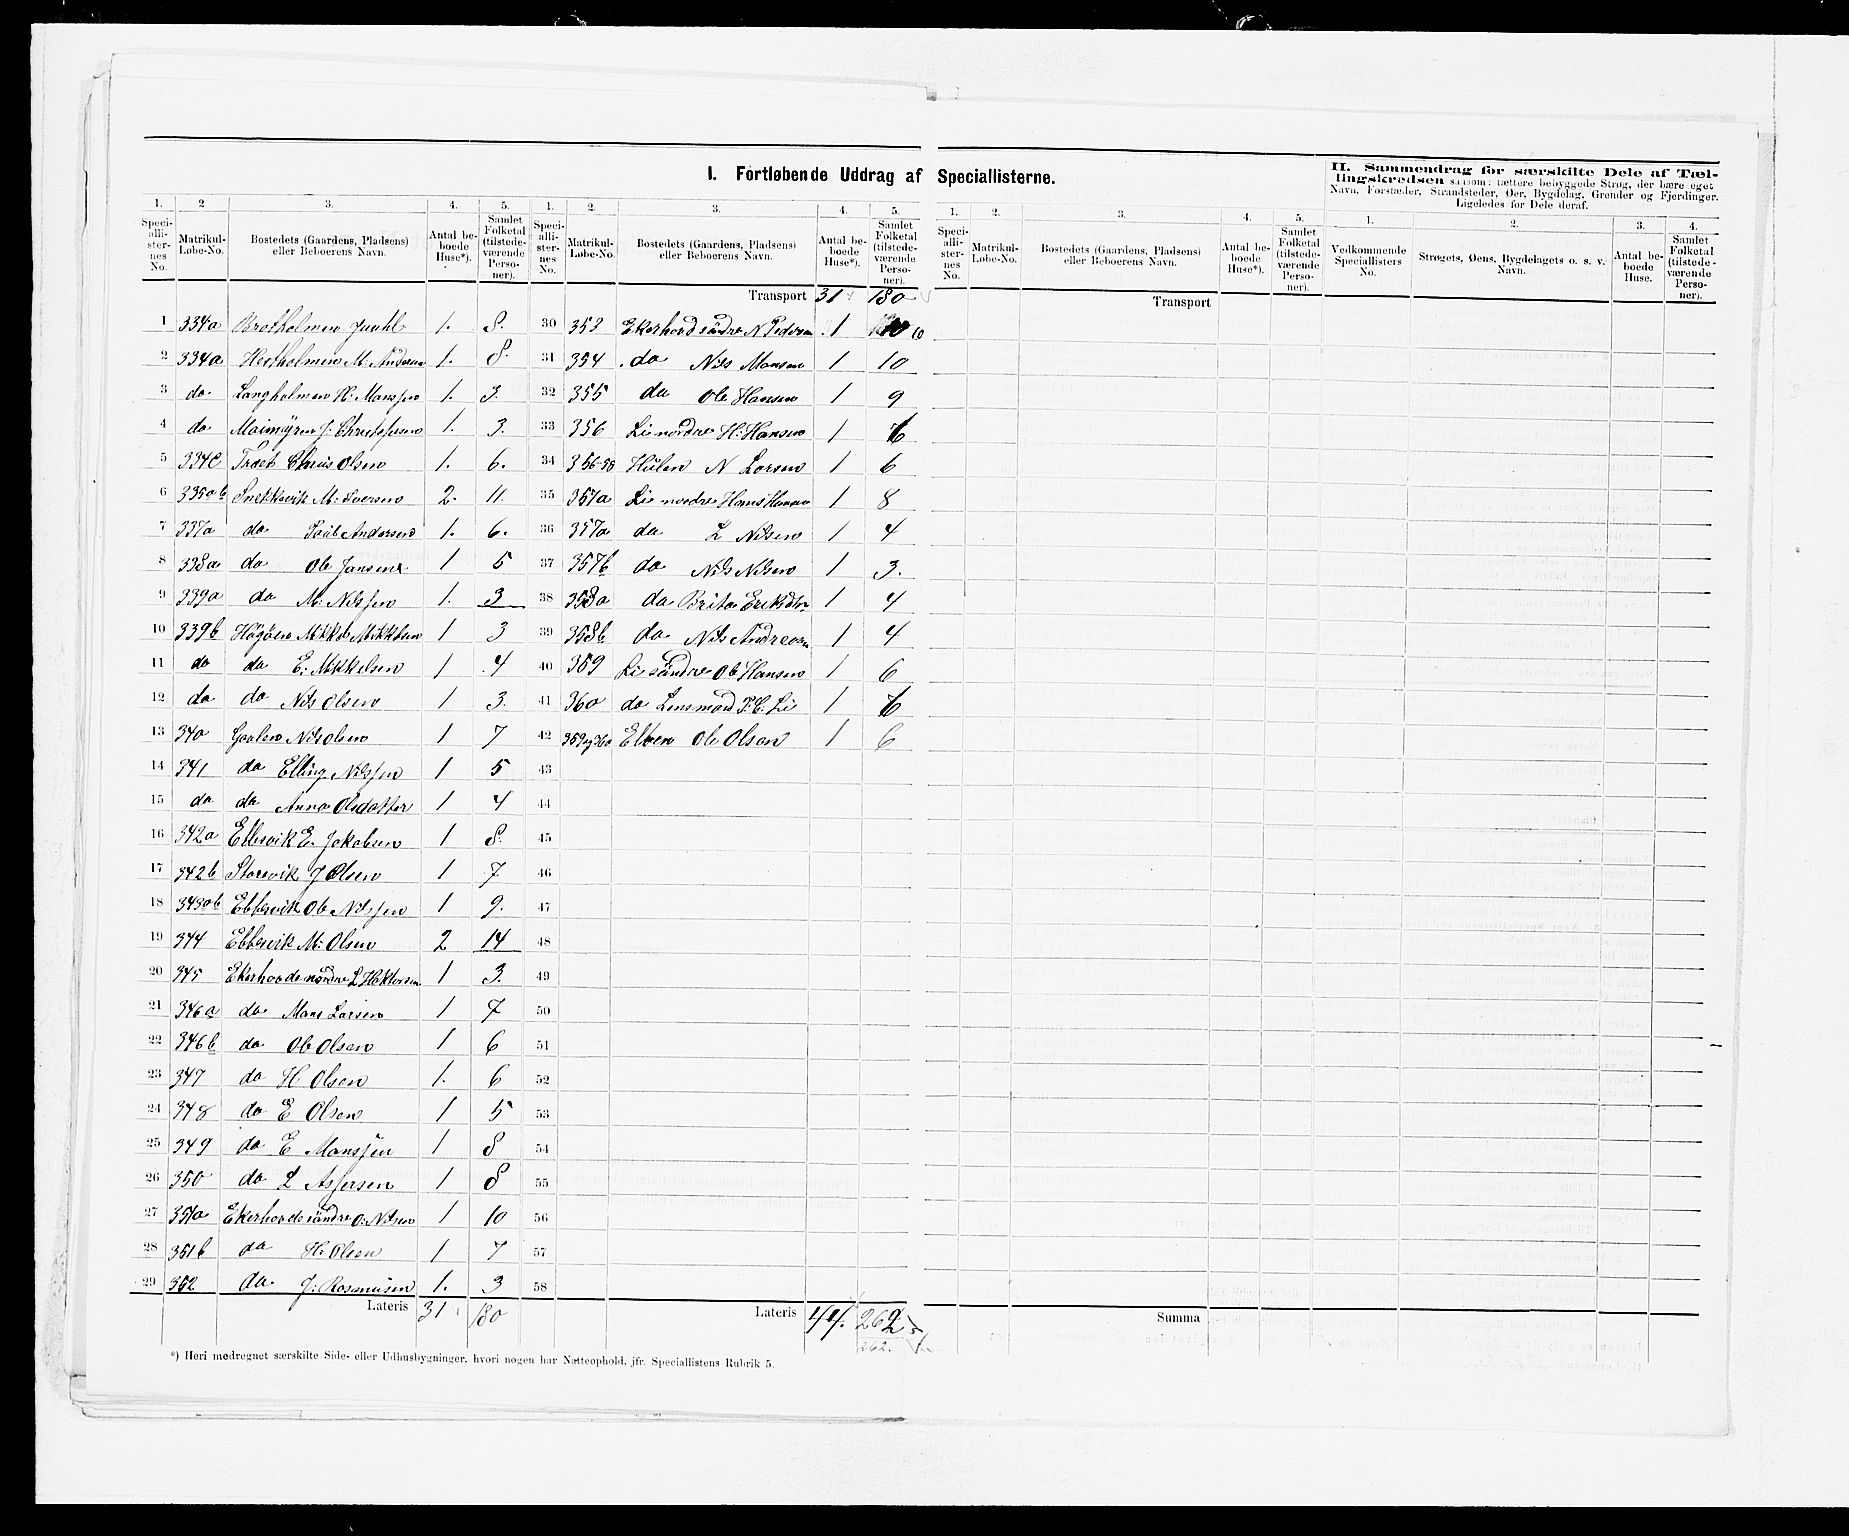 I. Fortløbende Uddrag af Speciallisterne.
II. Sammendrag for særskilte Dele af Tæl-
lingskredsen saasom: tættere bebyggede Strøg, der bære eget
Navn, Forstæder, Strandsteder, Øer, Bygdelag, Grender og Fjerdinger.
Ligeledes for Dele deraf.
1. 2 3. 4. 5. 1. 2. 3. 4. 5. 1. 2. 3. 4. 5. 1. 2. 3. 4.
Speci-alli-ster-nes No. Matrikul-Løbe-No. Bostedets (Gaardens, Pladsens) eller Beboerens Navn. Antal be-boede Huse*). Samlet Folketal (tilstede-værende Perso-ner).
Speci-alli-ster-nes No. Matrikul-Løbe-No. Bostedets (Gaardens, Pladsens) eller Beboerens Navn. Antal be-boede Huse*). Samlet Folketal (tilstede-værende Perso-ner).
Speci-alli-ster-nes No. Matrikul-Løbe-No. Bostedets (Gaardens, Pladsens) eller Beboerens Navn. Antal be-boede Huse*). Samlet Folketal (tilstede-værende Perso-ner).
Vedkommende Speciallisters No. Strøgets, Øens, Bygdelagets o. s. v. Navn. Antal be-boede Huse. Samlet Folketal (tilstede-værende Perso-ner).
Transport 31 180 Transport
1 334a Brotholmen Juuhl 1. 8. 30 353 Ekerhovd söndre N Pedersen 1 10
2 334a Hestholmen M. Andersen 1. 8. 31 354 do Nils Monsen 1 10
3 do Langholmen H. Monssen 1. 3. 32 355 do Ole Hansen 1 9
4 do Maimyren J. Christofersen 1. 3. 33 356 Li nordre H. Hansen 1 6
5 334c Traet Clnus Olsen 1. 6. 34 356-58 Hülen N Larsen 1 6
6 335ab Snekkevik M. Iversen 2. 11. 35 357a Li nordre Hans Hansen 1 8
7 337a do Andersen 1. 6. 36 357a do L Nilsen 1 4
8 338a do Ole Jansen 1 5 37 357b do Nils Nilsen 1 3.
9 339a do M. Nilssen 1. 3 38 358a do Brita Eriksdtr 1 4
10 339b Högöen Mikkel Mikkelsen 1 3 39 358b do Nils Andreasen 1 4
11 do do E. Mikkelsen 1 4 40 359 Li söndre Ole Hansen 1 6
12 do do Nils Olsen 1 3. 41 360 do Lensmand T. C. Li 1 6
13 340 Gaalen Nils Olsen 1 7 42 359 og 360 Elven Ole Olsen 1 6
14 341 do Elling Nilssen 1 5 43
15 do do Anna Olsdatter 1 4 44
16 342a Ebbesvik E. Jakobsen 1 8. 45
17 342b Storevik J Olsen 1 7 46
18 343ab Ebbesvik Ole Nilssen 1 9. 47
19 344 Ebbesvik M. Olsen 2 14 48
20 345 Ekerhovde nordre L Hektorsen 1 3. 49
21 346a do Mons Larsen 1 7 50
22 346b do Ole Olsen 1 6 51
23 347 do H Olsen 1. 6 52
24 348 do E Olsen 1 5 53
25 349 do E Monssen 1 8 54
26 350 do L Assersen 1 8 55
27 351a Ekerhovde söndre O. Nilsen 1 10 56
28 351b do H. Olsen 1 7 57
29 352 do J. Rasmusen 1. 3 58
Lateris 31 180 Lateris 44. 262 Summa
262.
*) Heri medregnet særskilte Side- eller Udhusbygninger, hvori nogen har Natteophold, jfr. Speciallistens Rubrik 5.